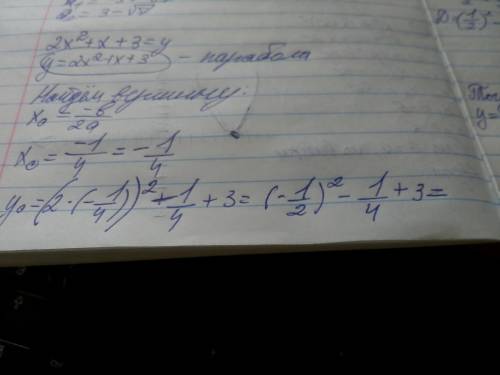 = 3 - √
2x² + x + 3 = y
y = 2x² + x + 3 - парабола
Найдём вершину:
x₀ = -b/2a
x₀ = -1/4 = -1/4
y₀ = (2·(-1/4))² + -1/4 + 3 = (-1/2)² - 1/4 + 3 =
y =